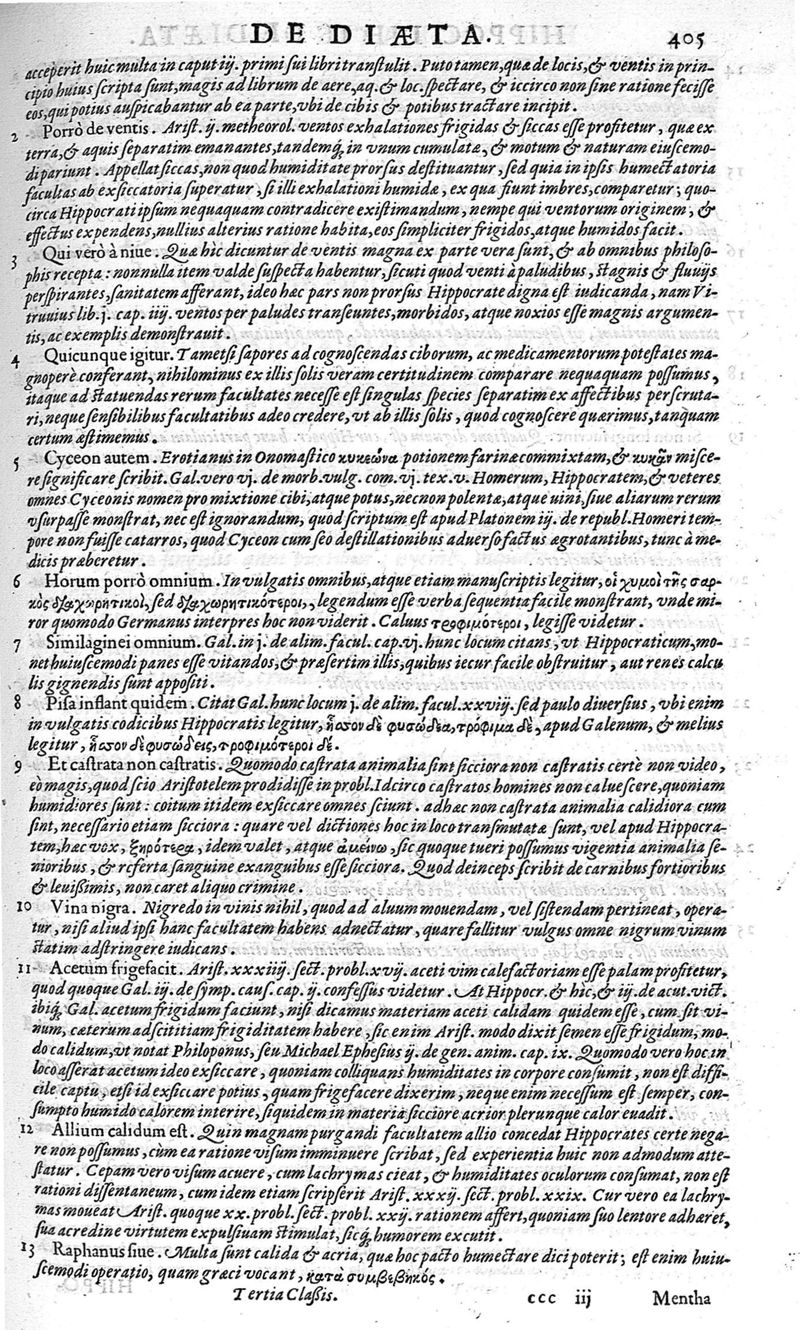 DE DIÆTA. 405
acceperit huic multa in caput iij. primi sui libri transtulit. Puto tamen, quæ de locis, & ventis in prin-
cipio huius scripta sunt, magis ad librum de aere, aq. & loc. spectare, & iccirco non sine ratione fecisse
eos, qui potius auspicabantur ab ea parte, vbi de cibis & potibus tractare incipit.
2 Porrò de ventis. Arist. ij. metheorol. ventos exhalationes frigidas & siccas esse profitetur, quæ ex
terra, & aquis separatim emanantes, tandemq́; in vnum cumulatæ, & motum & naturam eiuscemo-
di pariunt. Appellat siccas, non quod humiditate prorsus destituantur, sed quia in ipsis humectatoria
facultas ab exsiccatoria superatur, si illi exhalationi humidæ, ex qua fiunt imbres, comparetur; quo-
circa Hippocrati ipsum nequaquam contradicere existimandum, nempe qui ventorum originem, &
effectus expendens, nullius alterius ratione habita, eos simpliciter frigidos, atque humidos facit.
3 Qui verò à niue. Quæ hìc dicuntur de ventis magna ex parte vera sunt, & ab omnibus philoso-
phis recepta: nonnulla item valde suspecta habentur, sicuti quod venti à paludibus, stagnis & fluuijs
perspirantes, sanitatem afferant, ideo hæc pars non prorsus Hippocrate digna est iudicanda, nam Vi-
truuius lib. j. cap. iiij. ventos per paludes transeuntes, morbidos, atque noxios esse magnis argumen-
tis, ac exemplis demonstrauit.
4 Quicunque igitur. Tametsi sapores ad cognoscendas ciborum, ac medicamentorum potestates ma-
gnoperè conferant, nihilominus ex illis solis veram certitudinem comparare nequaquam possumus,
itaque ad statuendas rerum facultates necesse est singulas species separatim ex affectibus perscruta-
ri, neque sensibilibus facultatibus adeo credere, vt ab illis solis, quod cognoscere quærimus, tanquam
certum æstimemus.
5 Cyceon autem. Erotianus in Onomastico κυκεῶνα potionem farinæ commixtam, & κυκᾷν misce-
re significare scribit. Gal. vero vj. de morb. vulg. com. vj. tex. v. Homerum, Hippocratem, & veteres
omnes Cyceonis nomen pro mixtione cibi, atque potus, necnon polentæ, atque uini, siue aliarum rerum
vsurpasse monstrat, nec est ignorandum, quod scriptum est apud Platonem iij. de republ. Homeri tem-
pore non fuisse catarros, quod Cyceon cum seo destillationibus aduerso factus ægrotantibus, tunc à me-
dicis præberetur.
6 Horum porrò omnium. In vulgatis omnibus, atque etiam manuscriptis legitur, οἱ χυμοὶ τῆς σαρ-
κὸς διαχωρητικοὶ, sed διαχωρητικότεροι, legendum esse verba sequentia facile monstrant, vnde mi-
ror quomodo Germanus interpres hoc non viderit. Caluus τροφιμότεροι, legisse videtur.
7 Similaginei omnium. Gal. in j. de alim. facul. cap. vj. hunc locum citans, vt Hippocraticum, mo-
net huiuscemodi panes esse vitandos, & præsertim illis, quibus iecur facile obstruitur, aut renes calcu
lis gignendis sunt appositi.
8 Pisa inflant quidem. Citat Gal. hunc locum j. de alim. facul. xxviij. sed paulo diuersius, vbi enim
in vulgatis codicibus Hippocratis legitur, ἧσσον δὲ φυσώδεα, τρόφιμα δὲ, apud Galenum, & melius
legitur, ἧσσον δὲ φυσώδεις, τροφιμότεροι δέ.
9 Et castrata non castratis. Quomodo castrata animalia sint sicciora non castratis certè non video,
eò magis, quod scio Aristotelem prodidisse in probl. Idcirco castratos homines non caluescere, quoniam
humidiores sunt: coitum itidem exsiccare omnes sciunt. adhæc non castrata animalia calidiora cum
sint, necessario etiam sicciora: quare vel dictiones hoc in loco transmutatæ sunt, vel apud Hippocra-
tem, hæc vox, ξηρότερα, idem valet, atque ἀμείνω, sic quoque tueri possumus vigentia animalia se-
nioribus, & referta sanguine exanguibus esse sicciora. Quod deinceps scribit de carnibus fortioribus
& leuißimis, non caret aliquo crimine.
10 Vina nigra. Nigredo in vinis nihil, quod ad aluum mouendam, vel sistendam pertineat, opera-
tur, nisi aliud ipsi hanc facultatem habens adnectatur, quare fallitur vulgus omne nigrum vinum
statim adstringere iudicans.
11 Acetum frigefacit. Arist. xxxiij. sect. probl. xvij. aceti vim calefactoriam esse palam profitetur,
quod quoque Gal. iij. de symp. caus. cap. ij. confessus videtur. At Hippocr. & hìc, & iij. de acut. vict.
ibiq́; Gal. acetum frigidum faciunt, nisi dicamus materiam aceti calidam quidem esse, cum sit vi-
num, cæterum adscititiam frigiditatem habere, sic enim Arist. modo dixit semen esse frigidum, mo-
do calidum, vt notat Philoponus, seu Michael Ephesius ij. de gen. anim. cap. ix. Quomodo vero hoc in
loco asserat acetum ideo exsiccare, quoniam colliquans humiditates in corpore consumit, non est diffi-
cile captu, etsi id exsiccare potius, quam frigefacere dixerim, neque enim necessum est semper, con-
sumpto humido calorem interire, siquidem in materia sicciore acrior plerunque calor euadit.
12 Allium calidum est. Quin magnam purgandi facultatem allio concedat Hippocrates certe nega-
re non possumus, cùm ea ratione visum imminuere scribat, sed experientia huic non admodum atte-
statur. Cepam vero visum acuere, cum lachrymas cieat, & humiditates oculorum consumat, non est
rationi dissentaneum, cum idem etiam scripserit Arist. xxxij. sect. probl. xxix. Cur vero ea lachry-
mas moueat Arist. quoque xx. probl. sect. probl. xxij. rationem affert, quoniam suo lentore adhæret,
sua acredine virtutem expulsiuam stimulat, sicq́; humorem excutit.
13 Raphanus siue. Multa sunt calida & acria, quæ hoc pacto humectare dici poterit; est enim huiu-
scemodi operatio, quam græci vocant, κατὰ συμβεβηκός.
Tertia Claßis. ccc iij Mentha